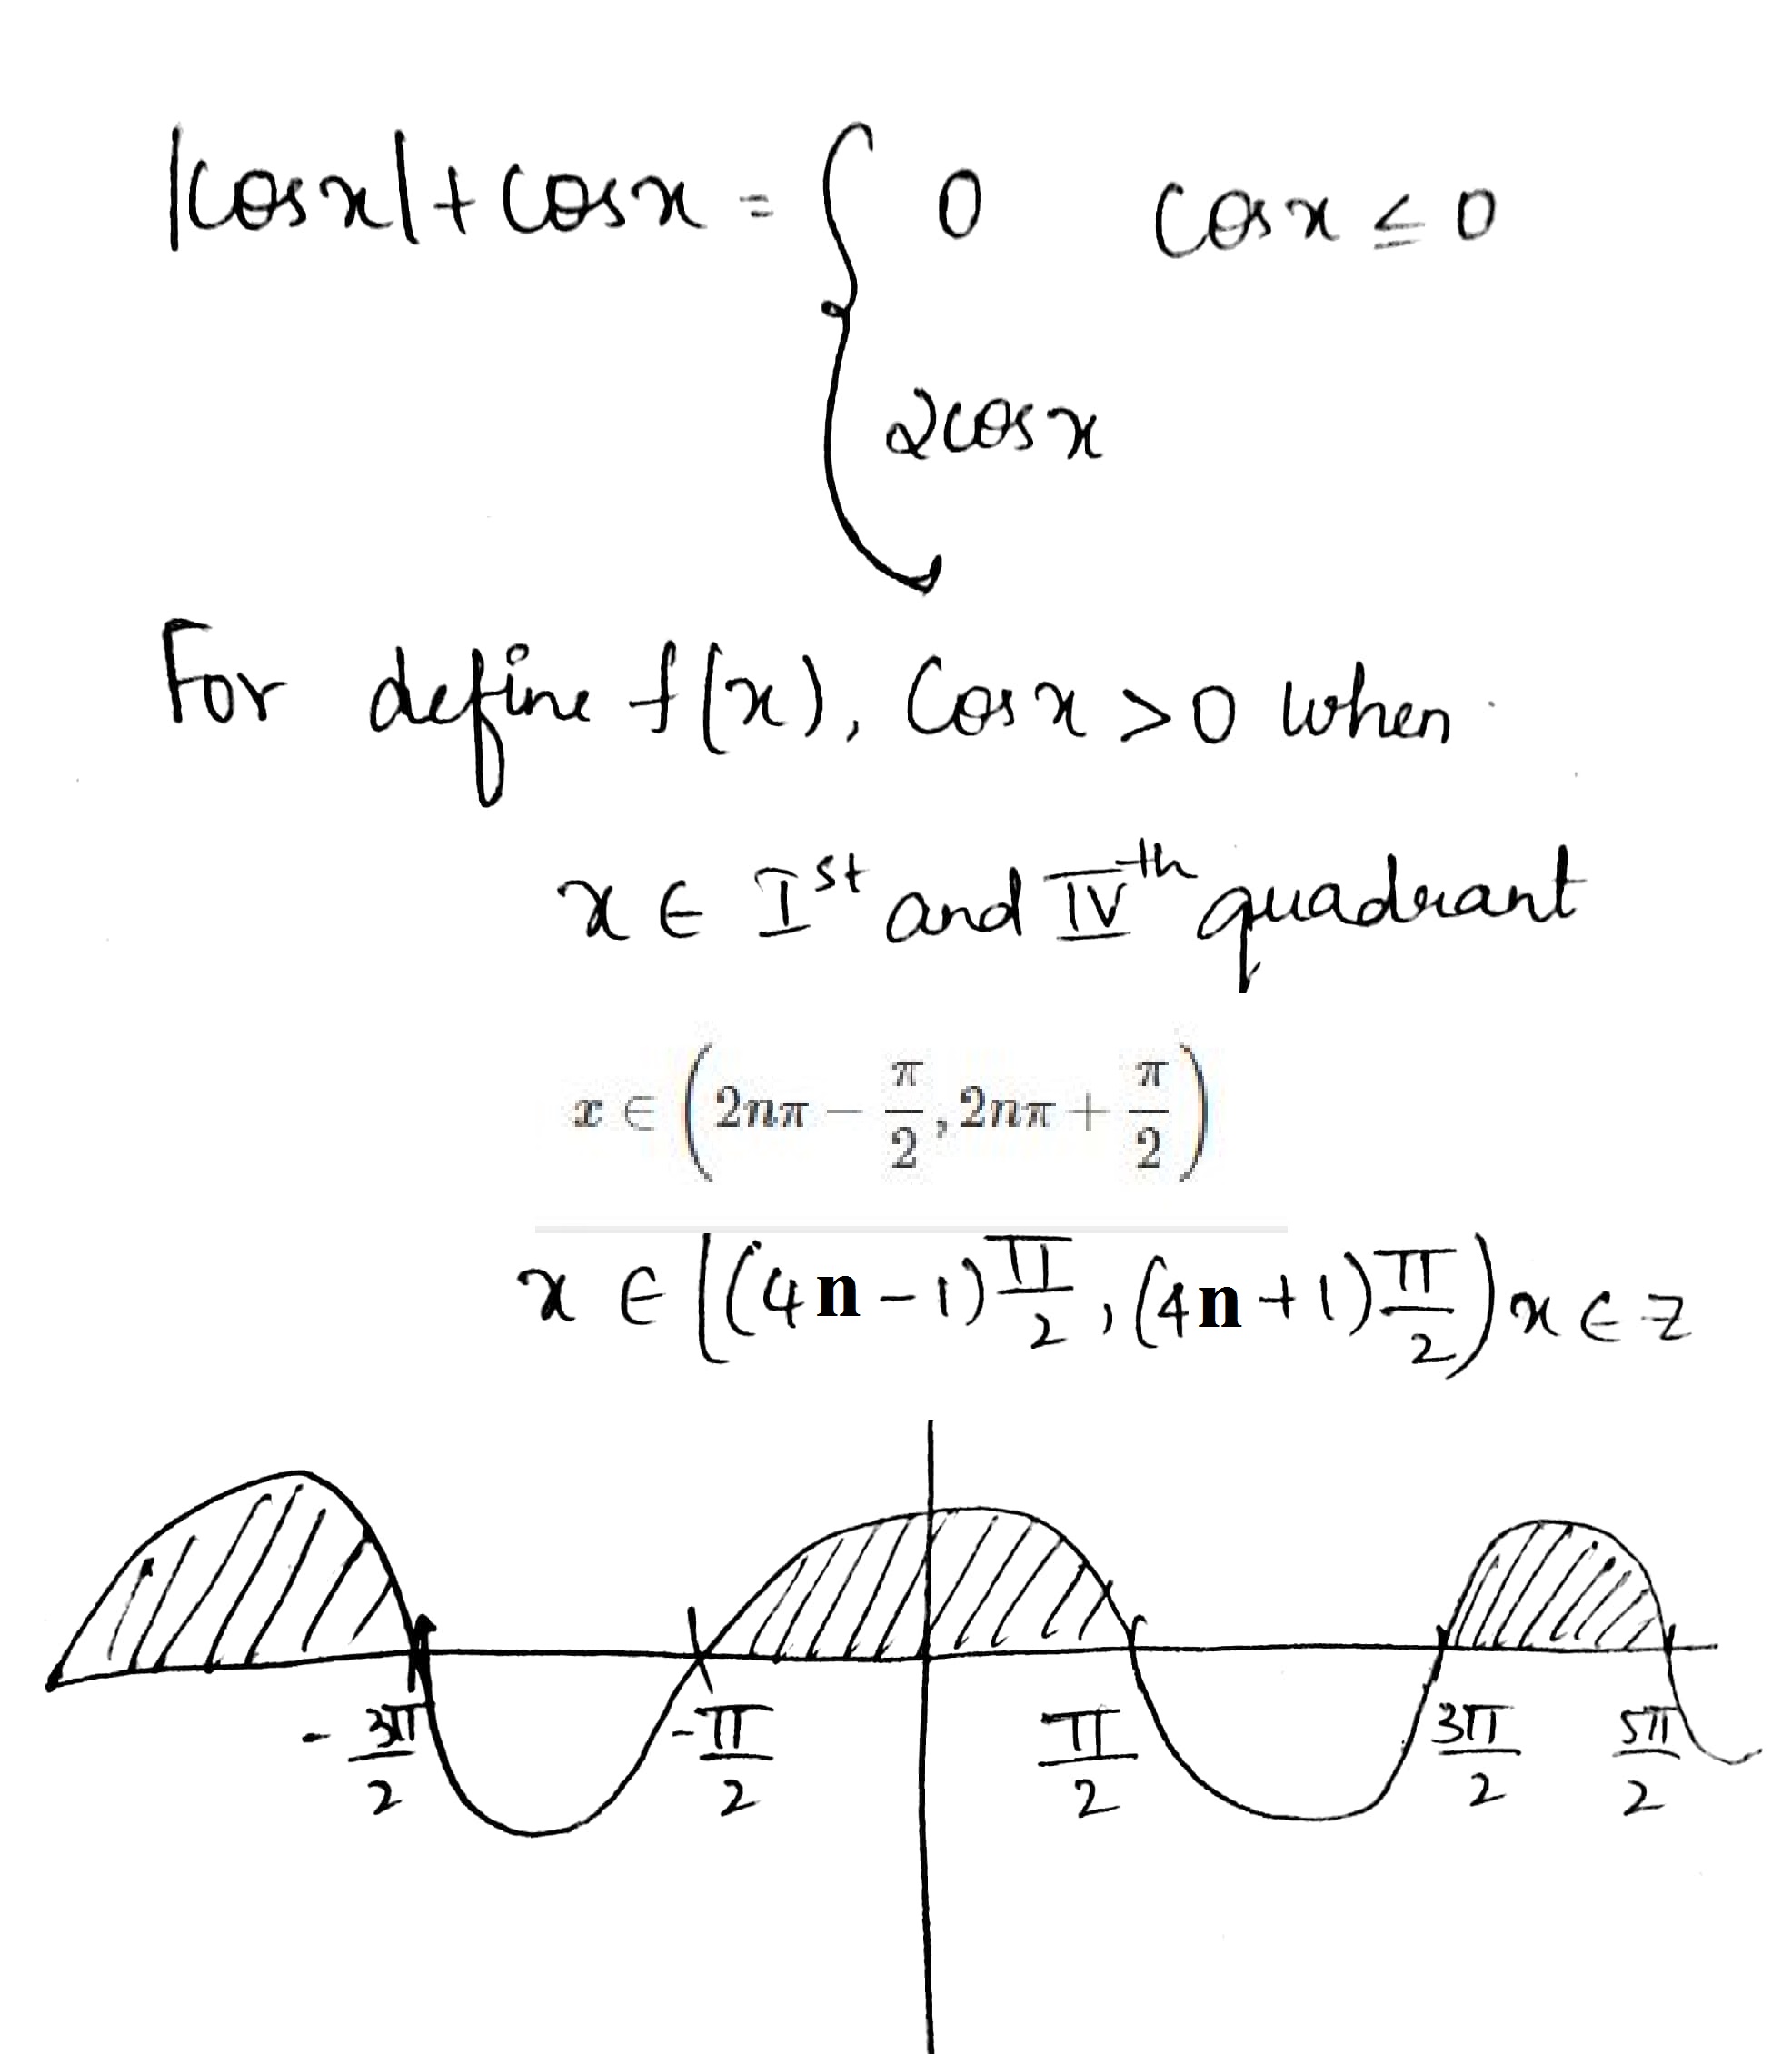 |cosx|+cosx = { 0 cosx ≤ 0
2cosx
For define f(x), Cosx >0 when
x ∈ Ist and IVth quadrant
x ∈ (2nπ − π/2, 2nπ + π/2)
x ∈ [(4n-1)π/2, (4n+1)π/2) x ∈ z
-3π/2 -π/2 π/2 3π/2 5π/2